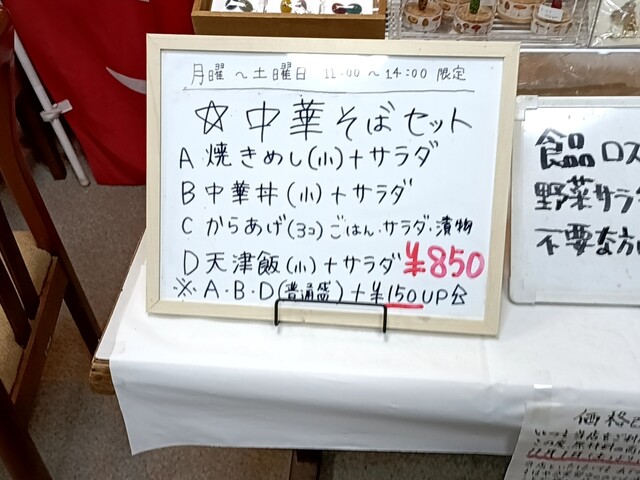 月曜～土曜日 11:00～14:00 限定
☆中華そばセット
A 焼きめし(小)+サラダ
B 中華丼(小)+サラダ
C からあげ(3コ)ごはん・サラダ・漬物
D 天津飯(小)+サラダ ¥850
※A・B・D(普通盛)+¥150UP
食品ロス
野菜サラ
不要な方
価格